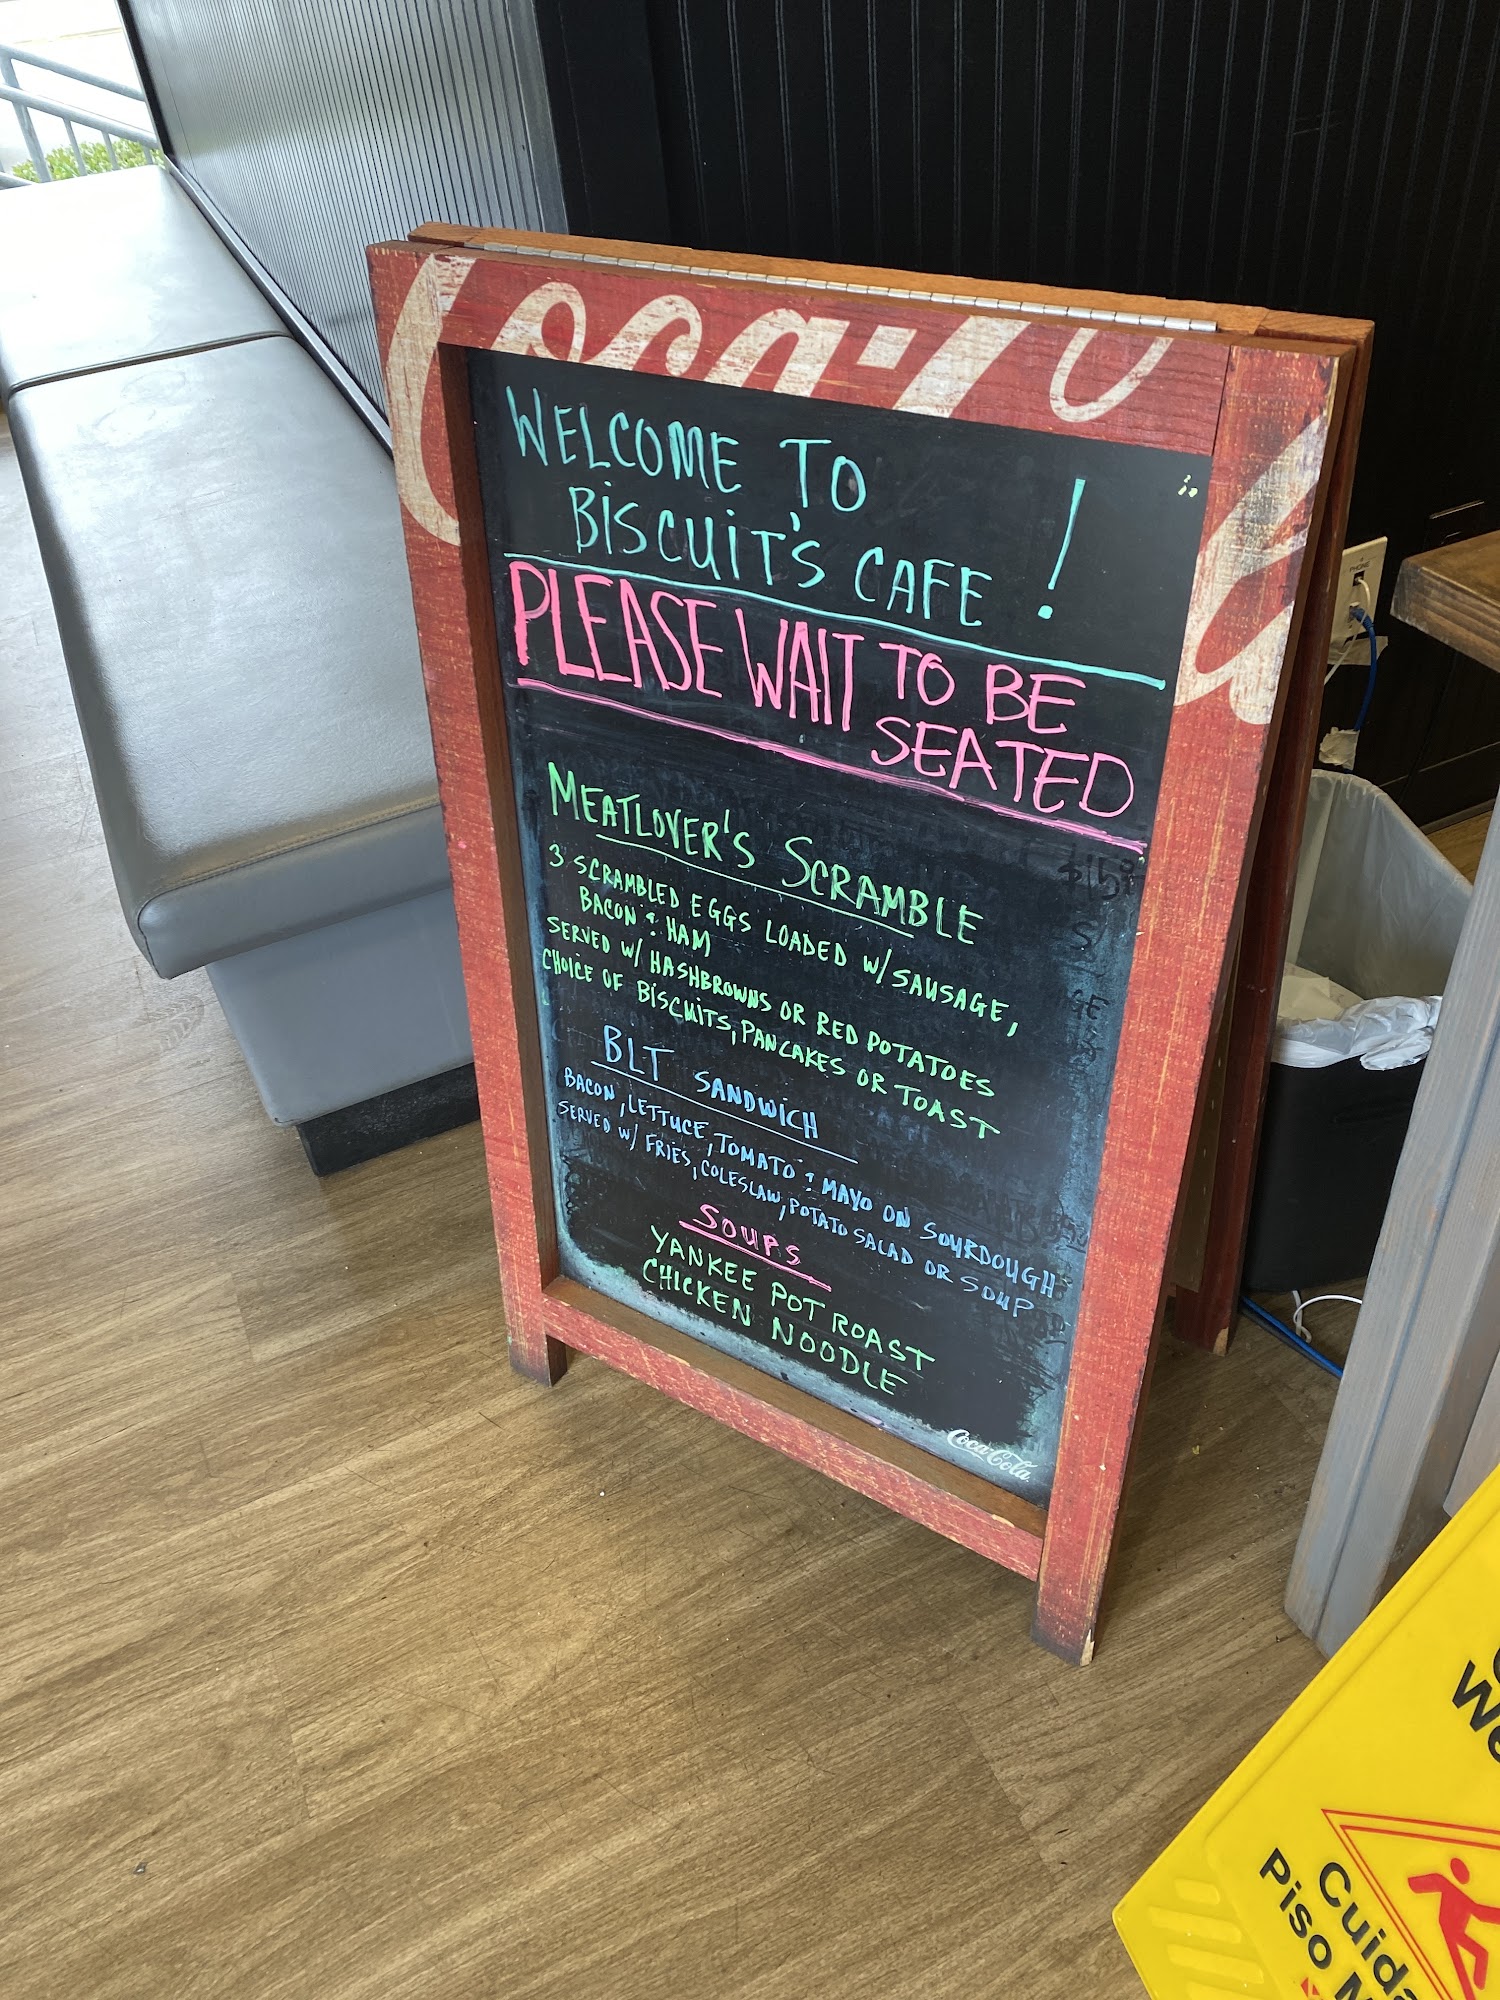 Coca-Co
WELCOME TO
BISCUIT'S CAFE !
PLEASE WAIT TO BE
SEATED
MEATLOVER'S SCRAMBLE
3 SCRAMBLED EGGS LOADED W/ SAUSAGE,
BACON & HAM
SERVED W/ HASHBROWNS OR RED POTATOES
CHOICE OF BISCUITS, PANCAKES OR TOAST
BLT SANDWICH
BACON, LETTUCE, TOMATO & MAYO ON SOURDOUGH
SERVED W/ FRIES, COLESLAW, POTATO SALAD OR SOUP
SOUPS
YANKEE POT ROAST
CHICKEN NOODLE
Coca-Cola
PHONE
We
Cuida
Piso M